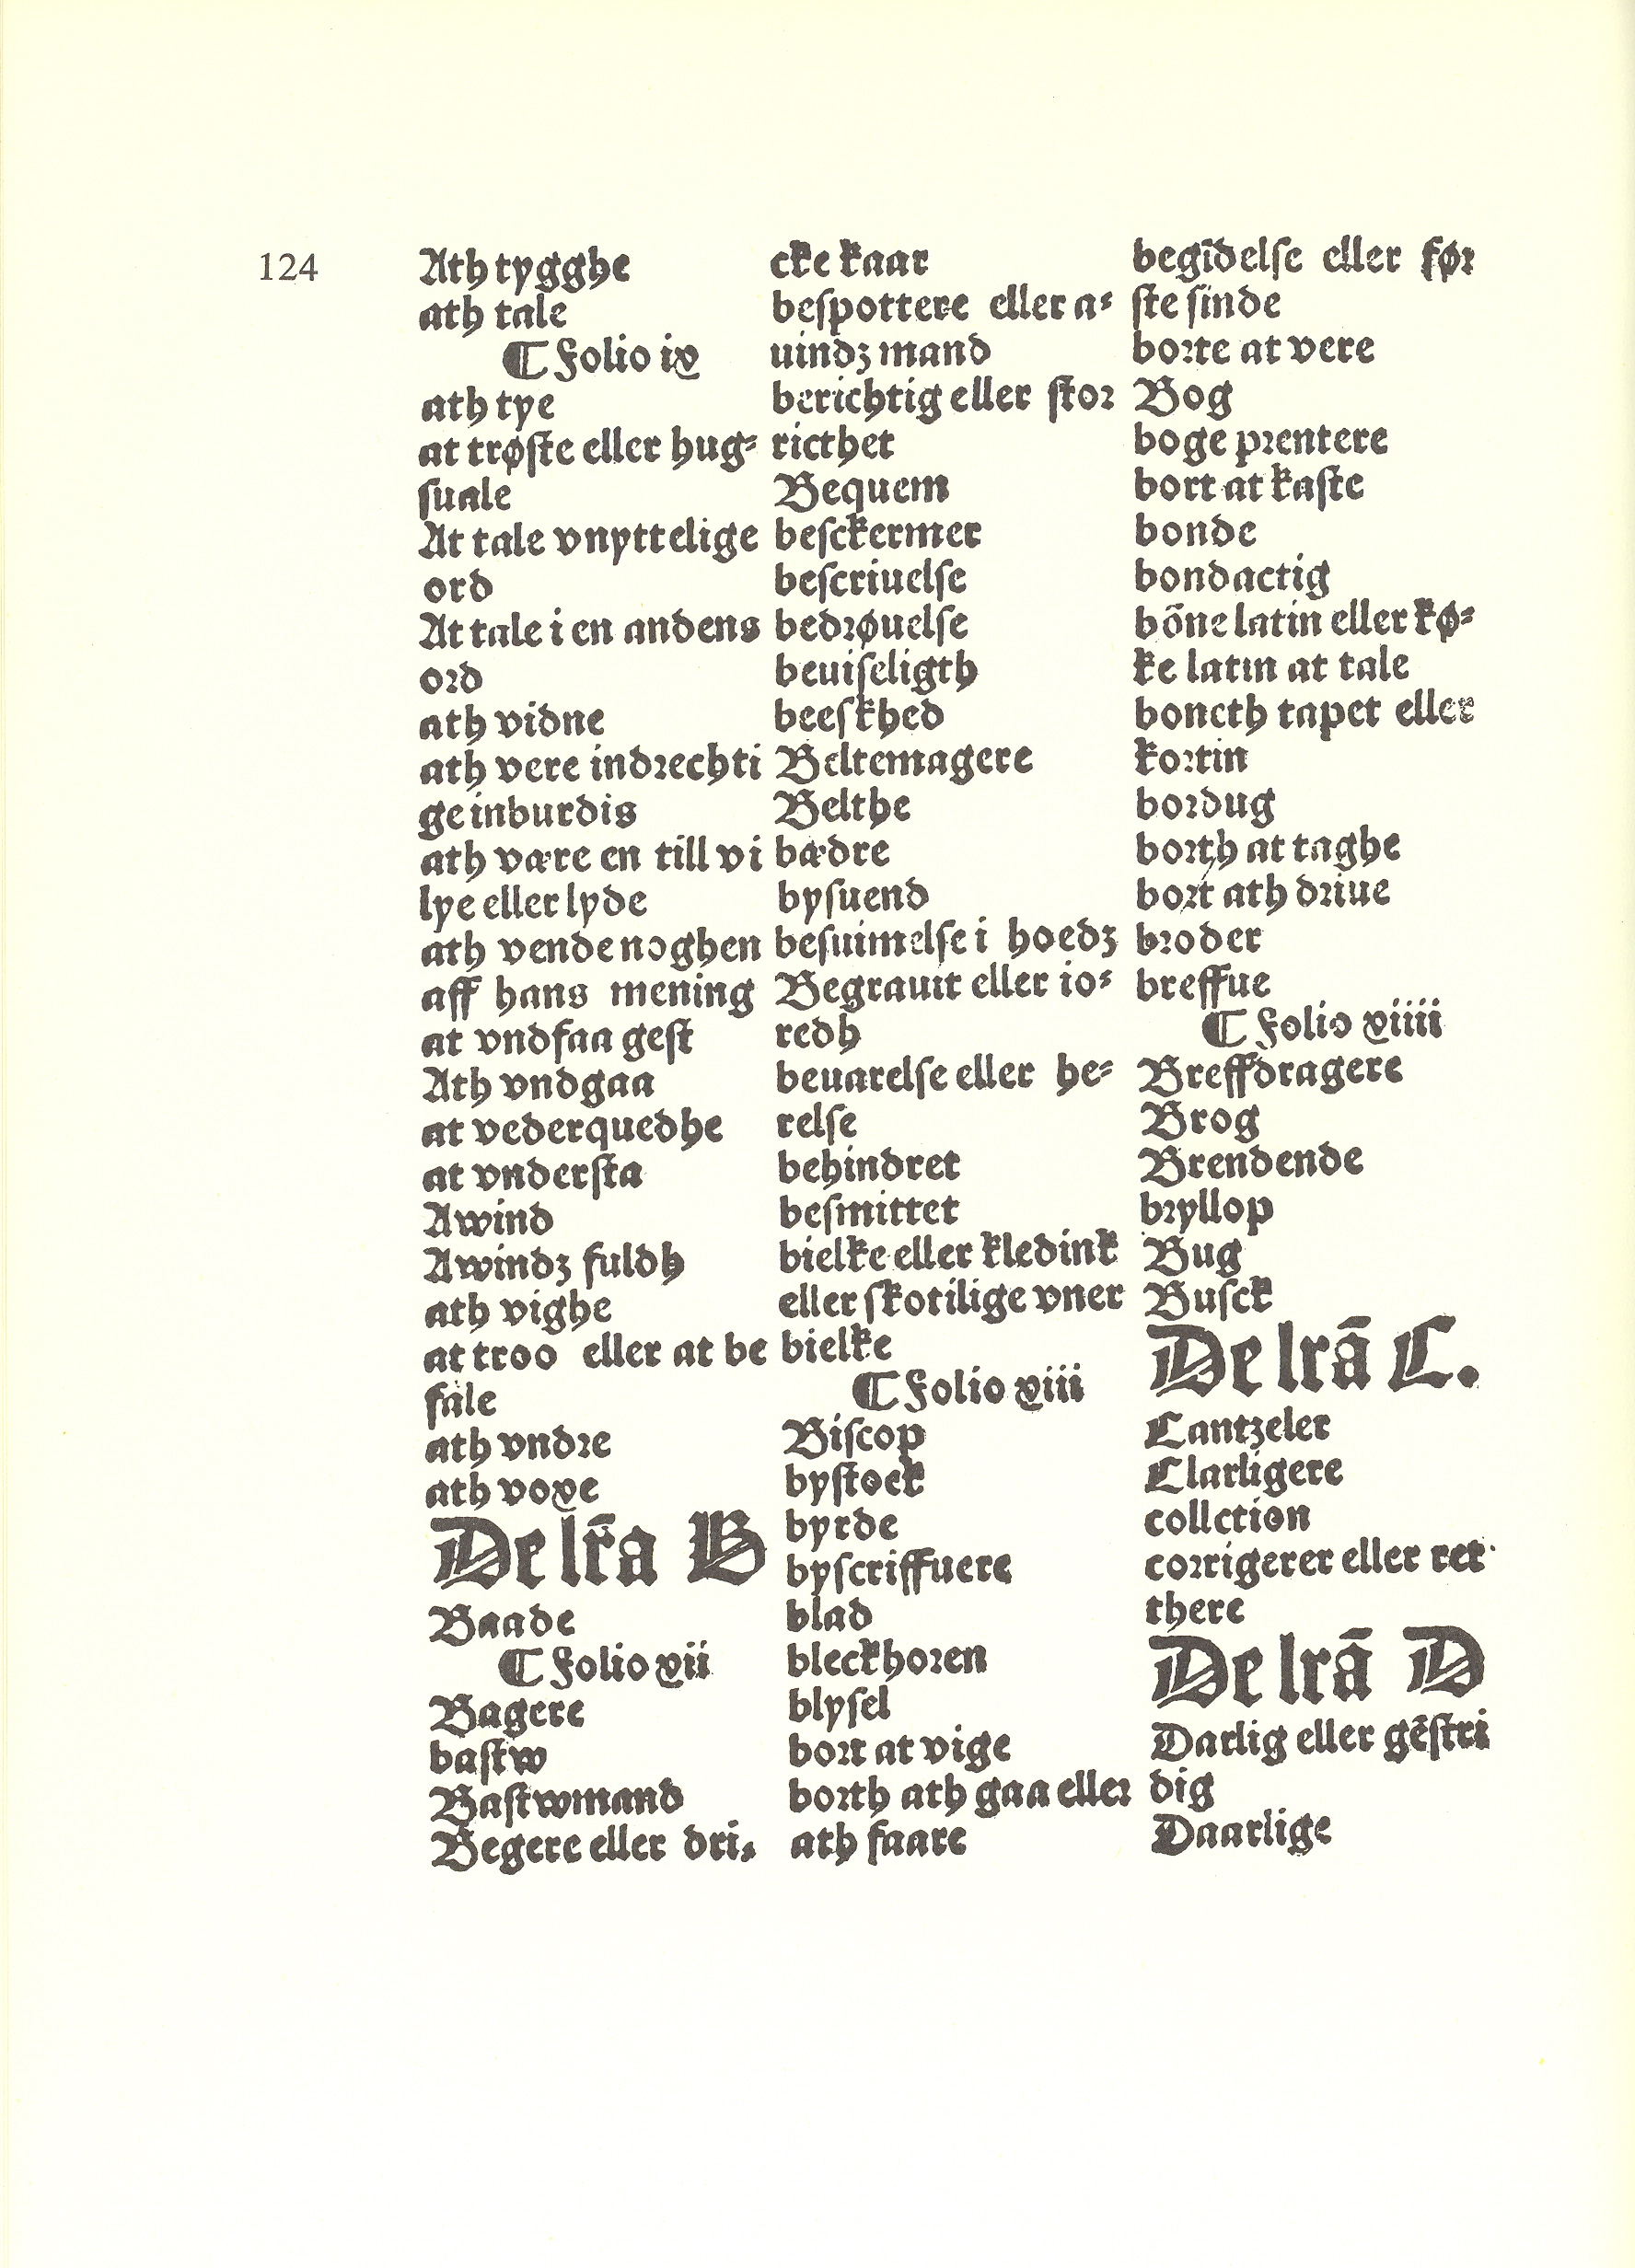 124
Ath tygghe
ath tale
¶ Folio ix
ath tye
at trøste eller hug⸗
suale
At tale vnyttelige
ord
At tale i en andens
ord
ath vidne
ath vere indrechti
ge inburdis
ath være en till vi
lye eller lyde
ath vende noghen
aff hans mening
at vndfaa gest
Ath vndgaa
at vederquedhe
at vndersta
Awind
Awindz fuldh
ath vighe
at troo eller at be
fale
ath vndre
ath voxe
De lr̃a B
Baade
¶ Folio xii
Bagere
bastw
Bastwmand
Begere eller dri⸗
cke kaar
bespottere eller a⸗
uindz mand
berichtig eller stor
ricthet
Bequem
besckermer
bescriuelse
bedrøuelse
beuiseligth
beeskhed
Beltemagere
Belthe
bædre
bysuend
besuimelse i hoedz
Begrauit eller io⸗
redh
beuarelse eller he⸗
relse
behindret
besmittet
bielke eller kledink
eller skotilige vner
bielke
¶ Folio xiii
Biscop
bystock
byrde
byscriffuere
blad
bleckhoren
blysel
bort at vige
borth ath gaa eller
ath faare
begīdelse eller før
ste sinde
borte at vere
Bog
boge prentere
bort at kaste
bonde
bondactig
bōne latin eller kø⸗
ke latin at tale
boncth tapet eller
kortin
bordug
borth at taghe
bort ath driue
broder
breffue
¶ Folio xiiii
Breffdragere
Brog
Brendende
bryllop
Bug
Busck
De lrā C.
Cantzeler
Clarligere
collction
corrigerer eller ret
there
De lrā D
Darlig eller gēstri
dig
Daarlige